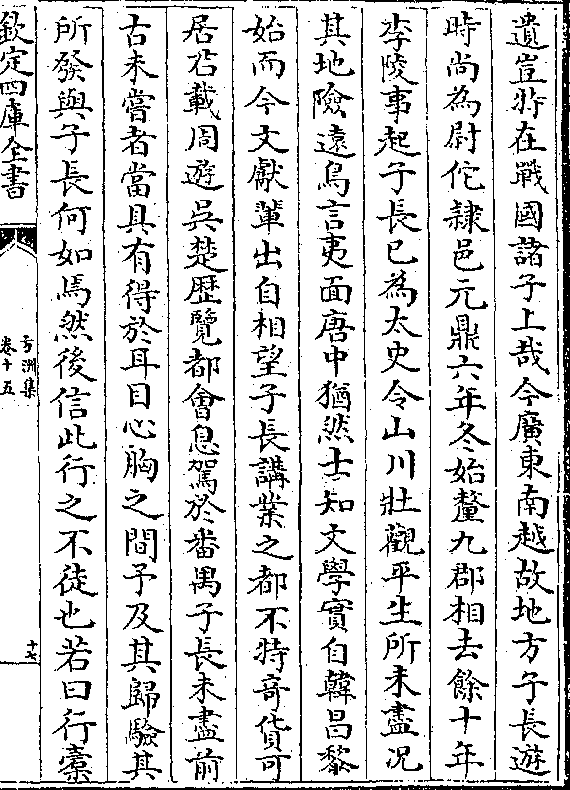 遺豈特在戰國諸子上哉今廣東南越故地方子長遊
時尚為尉佗隸邑元鼎六年冬始釐九郡相去餘十年
李陵事起子長已為太史令山川壯觀平生所未盡况
其地險遠鳥言夷面唐中猶然士知文學實自韓昌黎
始而今文獻輩出自相望子長講業之都不特竒貨可
居君載周遊吳楚歷覽都會息駕於番禺子長未盡前
古未嘗者當具有得於耳目心胸之間予及其歸驗其
所發與子長何如焉然後信此行之不徒也若曰行橐
欽定四庫全書
方洲集
卷十五
十七